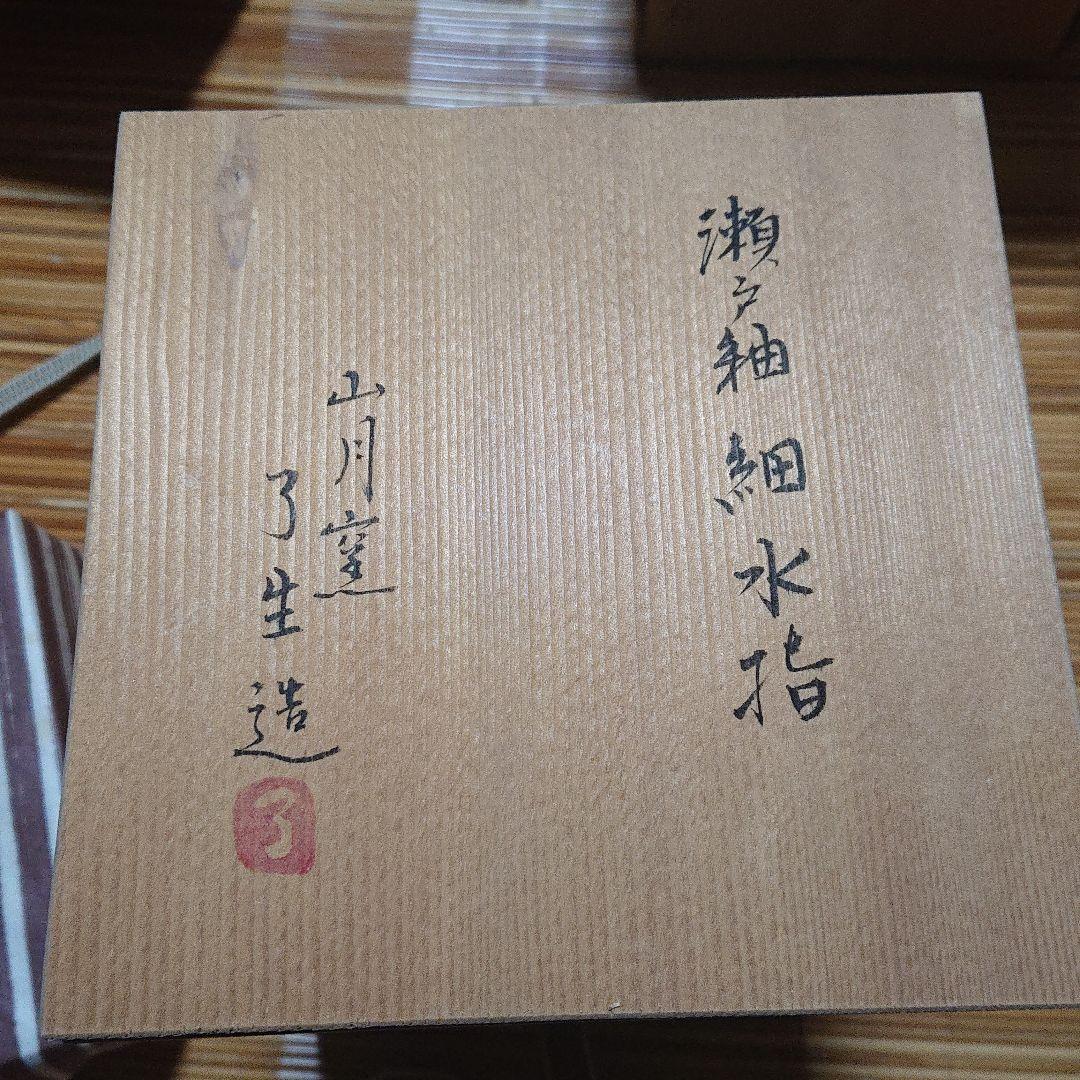 瀬戸釉 細水指
山月窯
了生造
了